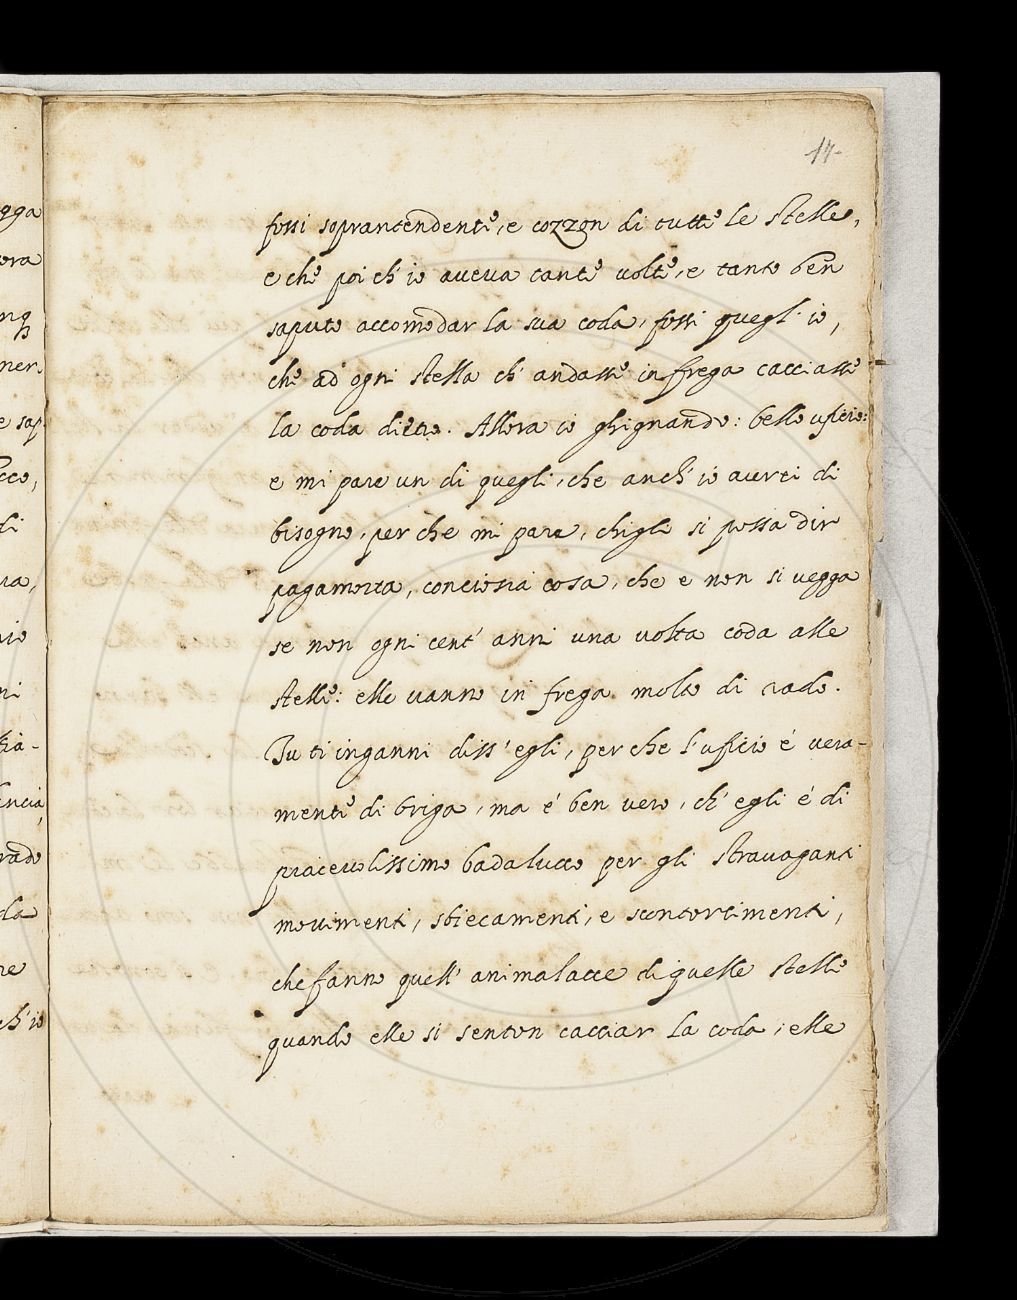 17
gga
fossi soprantendente, e cozzon di tutte le stelle,
era
e che poi ch' io aveva tante volte, e tanto ben
saputo accomodar la sua coda, fossi quegli io,
ner.
che ad ogni stella ch' andasse in frega cacciasse
e sap
la coda dietro. Allora io ghignando: bello uficio:
cco,
e mi pare un di quegli, che anch' io averei di
di
bisogno, per che mi pare, ch'egli si possa dir
pagamorta, conciosia cosa, che e non si vegga
se non ogni cent' anni una volta coda alle
ni
stelle: elle vanno in frega molto di rado.
Tu ti inganni diss' egli, per che l' uficio é vera-
mente di briga, ma é ben vero, ch' egli é di
piacevolissimo badalucco per gli stravaganti
movimenti, sbiecamenti, e scontorcimenti,
che fanno quell' animalacce di quelle stelle
ch' io
quando elle si senton cacciar la coda, elle